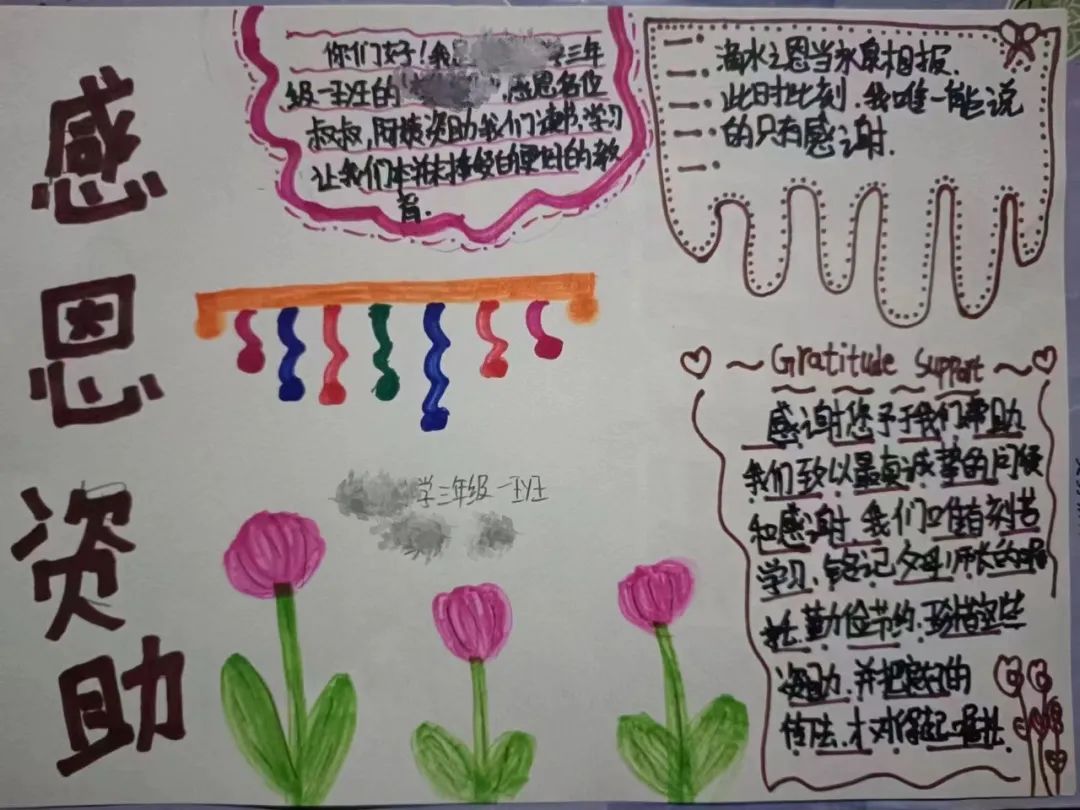 感恩资助
你们好！我 三年
级一班的 ，感恩各位
叔叔，阿姨资助我们读书，学习
让我们 接受 更好的教
育.
滴水之恩当永泉相报.
此时此刻，我唯一能说
的只有感谢.
Gratitude Support
感谢您予于我们帮助
我们致以最真诚挚的问候
和感谢，我们唯有刻苦
学习，铭记父母，师长的嘱
托，勤力俭节约，珍惜这些
资助，并把 的
传 ，才对得起嘱托.
学三年级一班